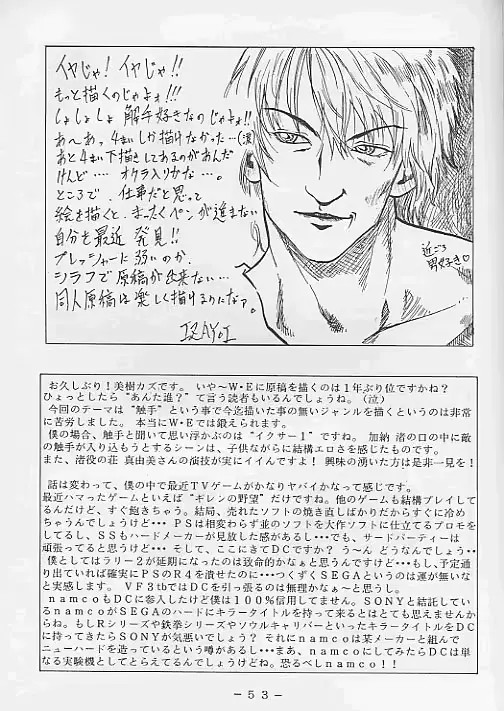 イヤじゃ！イヤじゃ!!
もっと描くのじゃよォ!!!
しょしょしょ 触手好きなのじゃよォ!!
あ〜あっ 4まいしか描けなかった…(涙)
あと4まい下描きしてあるのがあんだ
けんど…. オクラ入りかな…。
ところで、仕事だと思って
絵を描くと、まったくペンが進まない
自分を最近 発見!!
プレッシャーに弱いのか、
シラフで原稿が出来ない…
同人原稿は楽しく描けるのになァ。
IZAYOI
近ごろ
男好き♡
お久しぶり！美樹カズです。 いや〜W・Eに原稿を描くのは１年ぶり位ですかね？
ひょっとしたら“あんた誰？”て言う読者もいるんでしょうね。（泣）
今回のテーマは“触手”という事で今迄描いた事の無いジャンルを描くというのは非常
に苦労しました。 本当にW・Eでは鍛えられます。
僕の場合、触手と聞いて思い浮かぶのは“イクサー１”ですね。 加納 渚の口の中に敵
の触手が入り込もうとするシーンは、子供ながらに結構エロさを感じたものです。
また、渚役の荘 真由美さんの演技が実にイインですよ！ 興味の湧いた方は是非一見を！
話は変わって、僕の中で最近TVゲームがかなりヤバイかなって感じです。
最近ハマったゲームといえば“ギレンの野望”だけですね。他のゲームも結構プレイして
るんだけど、すぐ飽きちゃう。結局、売れたソフトの焼き直しばかりだからすぐに冷め
ちゃうんでしょうけど・・・ PSは相変わらず並のソフトを大作ソフトに仕立てるプロモを
してるし、SSもハードメーカーが見放した感があるし・・・でも、サードパーティーは
頑張ってると思うけど・・・ そして、ここにきてDCですか？ う〜ん どうなんでしょう・・
僕としてはラリー２が延期になったのは致命的かなぁと思うんですけど・・・もし、予定通
り出ていれば確実にPSのR4を潰せたのに・・・つくづくSEGAというのは運が無いな
と実感します。 VF3tbではDCを引っ張るのは無理かなぁ〜と思うし。
namcoもDCに参入したけど僕は100%信用してません。SONYと結託してい
るnamcoがSEGAのハードにキラータイトルを持って来るとはとても思えませんか
らね。もしRシリーズや鉄拳シリーズやソウルキャリバーといったキラータイトルをDC
に持ってきたらSONYが気悪いでしょう？ それにnamcoは某メーカーと組んで
ニューハードを造っているという噂があるし・・・まあ、namcoにしてみたらDCは単
なる実験機としてとらえてるんでしょうけどね。恐るべしnamco！！
－５３－